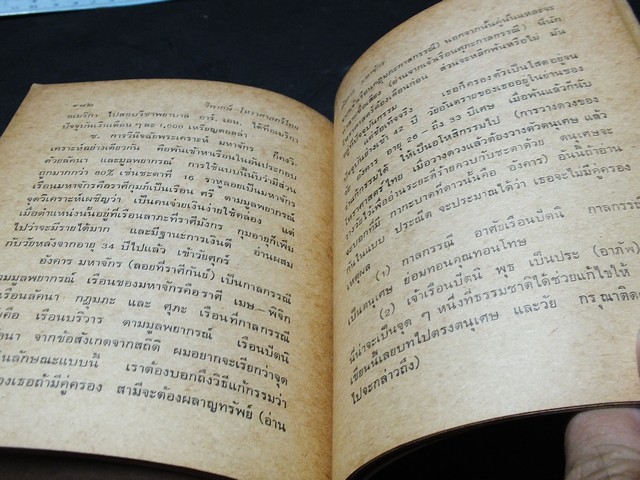 ๑๘๒
วิพากษ์-โหราศาสตร์ไทย
อเมริกา ไปสอบวิชาพยาบาล อาร์. เอน. ได้ที่อเมริกา
ปัจจุบันเงินเดือน ๆ ละ 1,000 เหรียญดอลล่า
ข. การวินิจฉัยพระเคราะห์ มหาจักร ก็ตรึง
เคราะห์อย่างเดียวกัน คือพันเข้าหาเรือนในเดิมประกอบ
ด้วยลัคนา และมูลพยากรณ์ การใช้แบบนี้นับว่ามีส่วน
ถูกมากกว่า 80% เช่นชะตาที่ 16 ราหูลอยเป็นมหาจักร
เรือนมหาจักรคือราศีกุมภ์ก็เป็นเรือน ศรี ตามมูลพยากรณ์
จุดวิเคราะห์เผชิญว่า เป็นคนจ่ายเงินง่ายใช้คล่อง แต่
เมื่อตำแหน่งนั้นอยู่ที่เรือนลาภะที่ราศีมังกร กุมอายุก็เพิ่ม
ไปว่าจะมีรายได้มาก และมีฐานะการเงินดี อ่านผสม
กับวัยหลังจากอายุ 34 ปีไปแล้ว เข้าวัยศุกร์
อังคาร มหาจักร (ลอยที่ราศีกันย์) เป็นกาลกรรณี
ตามมูลพยากรณ์ เรือนของมหาจักรคือราศี เมษ-พิจิก
เรือนลัคนา กฎุมภะ และ ศุภะ เรือนที่กาลกรรณี
คือ เรือนบริวาร ตามมูลพยากรณ์ เรือนปัตนิ
จากข้อสังเกตจากสถิติ ผมอยากจะเรียกว่าจุด
ลักษณะแบบนี้ เราต้องบอกถึงวิธีแก้กรรมว่า
ของเธอถ้ามีคู่ครอง สามีจะต้องผลาญทรัพย์ (อ่าน
กาลกรรณี) นอกจากนั้นคู่นั้นแหละจะ
(อ่านจากเจ้าเรือนศุภะกาลกรรณี) นี่นัก
ต้องเตือนก่อน ส่วนจะหลีกพ้นหรือไม่ มัน
เธอก็ครองตัวเป็นโสดอยู่จน
42 ปี วัยอันตรายของเธออยู่ในย่านของ
วัย อังคาร อายุ 26 – 33 ปีเศษ เมื่อพ้นแล้วก็นับ
ให้เป็นอโหสิกรรมไป (การวางดวงของ
โหราศาสตร์ไทย เมื่อวางดวงแล้วต้องวางตัวตนุเศษ แล้ว
ระยะก็ดีร้ายควบกับชะตาด้วย ตนุเศษจะ
บอกที่มี กากะบาทที่ดาวนั้นคือ อังคาร) อันนี้ถ้าอ่าน
กันในแบบ ประณีต จะประมาณได้ว่า เธอจะไม่มีคู่ครอง
เหตุผล (1) กาลกรรณี อาศัยเรือนปัตนิ กาลกรรณี
เป็นตนุเศษ ย่อมทอนคุณทอนโทษ
(2) เจ้าเรือนปัตนิ พุธ เป็นประ (อาภัพ)
นี่น่าจะเป็นจุด ๆ หนึ่งที่ธรรมชาติได้ช่วยแก้ไขให้
เขียนนี้เลยบทไปตรงตนุเศษ และวัย กรุณาติดตาม
ไปจะกล่าวถึง)